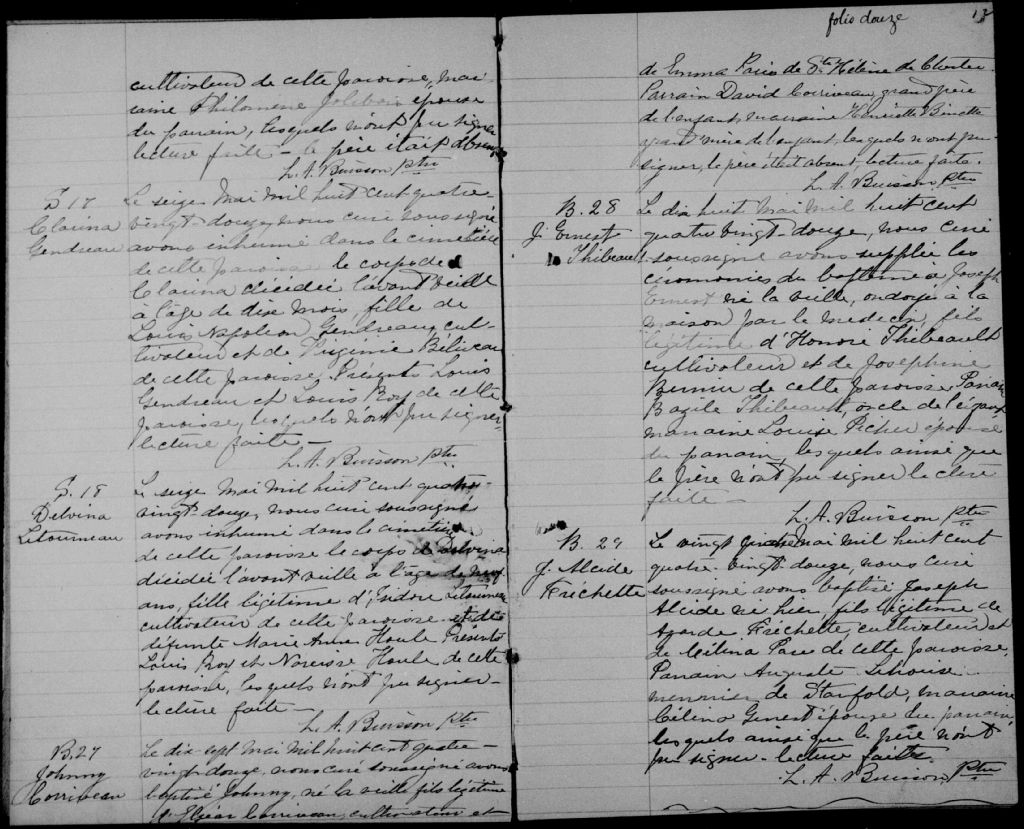 cultivateur de cette paroisse, mar-
raine Philomène épouse
du parrain, lesquels n'ont pu signer
lecture faite - le père était absent
L. A. Buisson Ptre
S. 17
Clarina
Gendreau
Le seize Mai mil huit cent quatre-
vingt-douze, nous curé soussigné
avons inhumé dans le cimetière
de cette paroisse le corps de
Clarina décédée l'avant veille
à l'âge de dix mois, fille de
Louis Napoléon Gendreau, cul-
tivateur et de Virginie Béliveau
de cette paroisse. Présents Louis
Gendreau et Louis Roy de cette
paroisse, lesquels n'ont pu signer-
lecture faite -
L. A. Buisson Ptre
S. 18
Delvina
Letourneau
Le seize Mai mil huit cent quatre-
vingt-douze, nous curé soussigné
avons inhumé dans le cimetière
de cette paroisse le corps de Delvina
décédée l'avant veille à l'âge de neuf
ans, fille légitime d'Isidore Letourneau
cultivateur de cette paroisse et de
défunte Marie Anne Houle Présents
Louis Roy et Narcisse Houle de cette
paroisse, lesquels n'ont pu signer-
lecture faite -
L. A. Buisson Ptre
B. 27
Johnny
Corriveau
Le dix-sept mai mil huit cent quatre-
vingt-douze, nous curé soussigné avons
baptisé Johnny, né la veille fils légitime
d'Elzéar Corriveau, cultivateur et
folio douze
12
de Emma Paris de Ste Hélène de Chester.
Parrain David Corriveau, grand père
de l'enfant, marraine Henriette Binette
grand'mère de l'enfant, lesquels n'ont pu
signer, le père était absent. lecture faite.
L. A. Buisson Ptre
B. 28
J. Ernest
Thibeault
Le dix huit Mai mil huit cent
quatre vingt-douze, nous curé
soussigné avons supplée les
cérémonies du baptême à Joseph
Ernest né la veille, ondoyé à la
maison par le médecin, fils
légitime d'Honoré Thibeault
cultivateur et de Josephine
Bernier de cette paroisse Parrain
Bazile Thibeault, oncle de
marraine Louise Picher épouse
du parrain, lesquels ainsi que
le père n'ont pu signer lecture
faite -
L. A. Buisson Ptre
B. 29
J. Alcide
Fréchette
Le vingt mai mil huit cent
quatre-vingt douze, nous curé
soussigné avons baptisé Joseph
Alcide né hier, fils légitime de
Agarde Fréchette, cultivateur et
de Célina Paré de cette paroisse,
Parrain Auguste
meunier de Stanfold, marraine
Célina Genest épouse du parrain,
lesquels ainsi que le père n'ont
pu signer. lecture faite.
L. A. Buisson Ptre